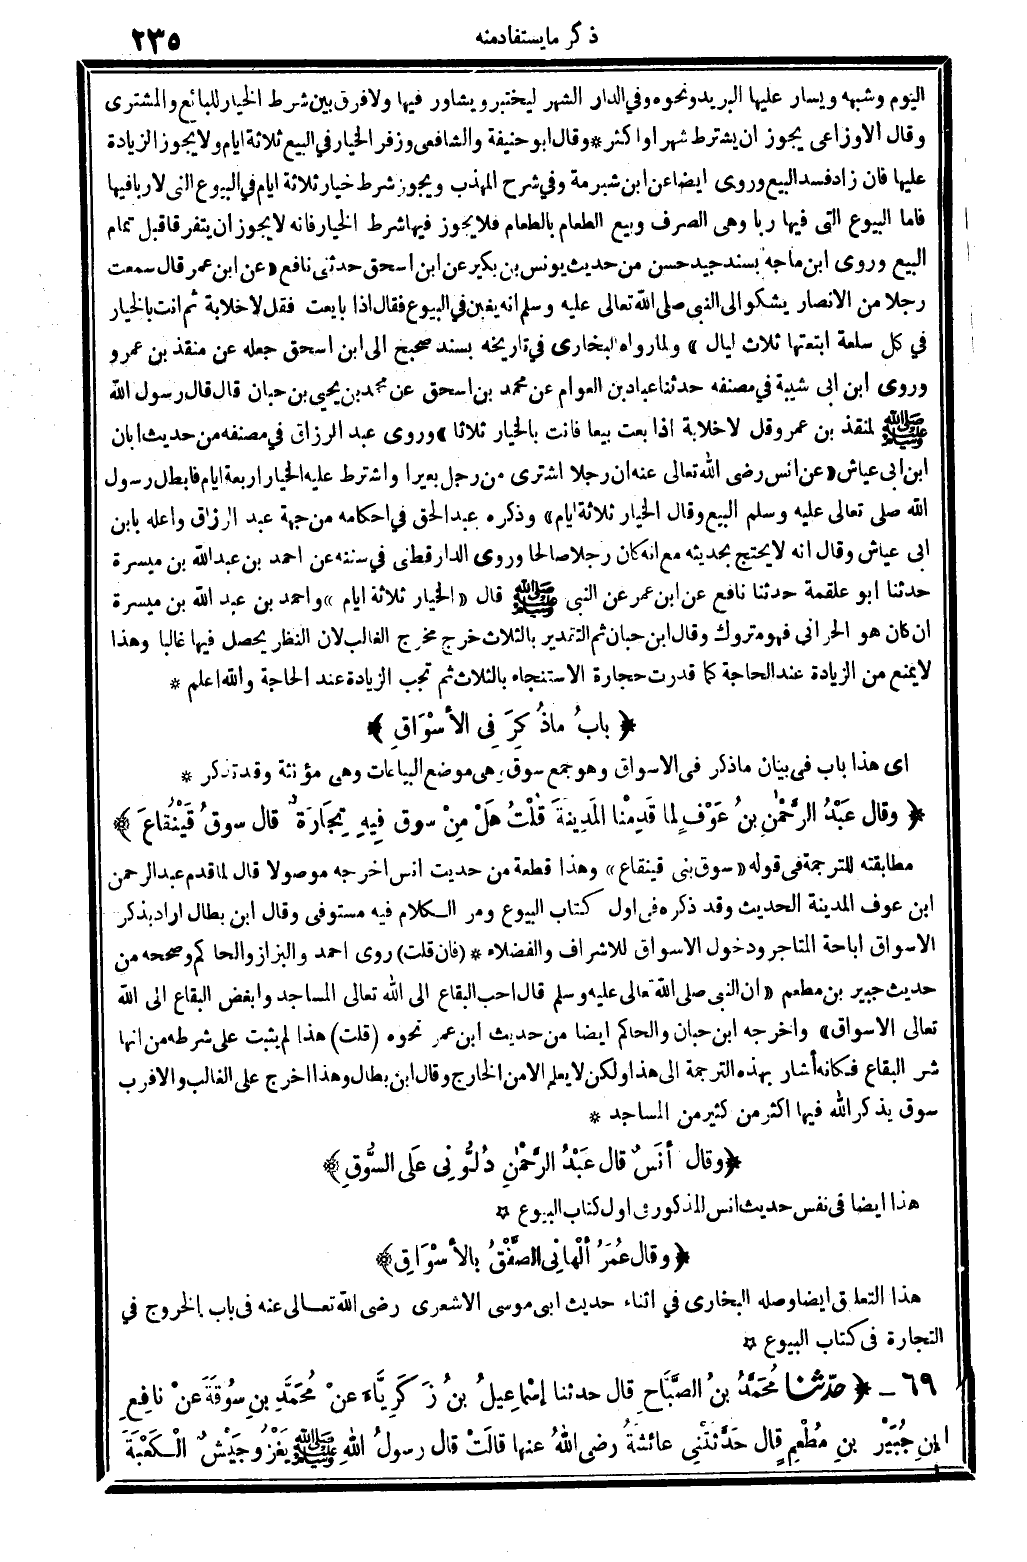 ذكر مايستفادمنه
٢٣٥
اليوم وشبهه ويسار عليها البريدونحوه وفي الدار الشهر ليختبر ويشاور فيها ولا فرق بين شرط الخيار للبائع والمشترى
وقال الأوزاعى يجوز ان يشترط شهر اوا كثر * وقال ابو حنيفة والشافعى وزفر الخيار في البيع ثلاثة ايام ولا يجوز الزيادة
عليها فان زاد فسد البيع وروى ايضا عن ابن شبرمة وفي شرح المهذب ويجوز شرط خيار ثلاثة ايام في البيوع التى لاربافيها
فاما البيوع التى فيها ربا وهى الصرف وبيع الطعام بالطعام فلا يجوز فيها شرط الخيار فانه لايجوز ان يتفرقا قبل تمام
البيع وروى ابن ماجه بسند جيد حسن من حديث يونس بن بكير عن ابن اسحق حدثنى نافع «عن ابن عمر قال سمعت
رجلا من الانصار يشكو الى النبى صلى الله تعالى عليه وسلم انه يغبن في البيوع فقال اذا بايعت فقل لا خلابة ثم انت بالخيار
في كل سلعة ابتعتها ثلاث ليال» ولما رواه البخارى في تاريخه بسند صحيح الى ابن اسحق جعله عن منقذ بن عمرو
وروى ابن ابى شيبة في مصنفه حدثنا عباد بن العوام عن محمد بن اسحق عن محمد بن يحيى بن حبان قال قال رسول الله
ﷺ لمنقذ بن عمرو قل لا خلابة اذا بعت بيعا فانت بالخيار ثلاثا» وروى عبد الرزاق في مصنفه من حديث ابان
ابن ابى عياش «عن انس رضى الله تعالى عنه ان رجلا اشترى من رجل بعيرا واشترط عليه الخيار اربعة ايام فابطل رسول
الله صلى تعالى عليه وسلم البيع وقال الخيار ثلاثة ايام» وذكره عبد الحق في احكامه من جهة عبد الرزاق واعله بابن
ابى عياش وقال انه لا يحتج بحديثه مع انه كان رجلا صالحا وروى الدارقطنى في سننه عن احمد بن عبد الله بن ميسرة
حدثنا ابو علقمة حدثنا نافع عن ابن عمر عن النبى ﷺ قال «الخيار ثلاثة ايام» واحمد بن عبد الله بن ميسرة
ان كان هو الحرانى فهو متروك وقال ابن حبان ثم التقدير بالثلاث خرج مخرج الغالب لان النظر يحصل فيها غالبا وهذا
لا يمنع من الزيادة عند الحاجة كما قدرت حجارة الاستنجاء بالثلاث ثم تجب الزيادة عند الحاجة والله اعلم *
﴿ بابُ ماذُ كِرَ فِى الأسْوَاقِ ﴾
اى هذا باب فى بيان ماذكر فى الاسواق وهو جمع سوق وهى موضع البياعات وهى مؤنثة وقد تذكر *
﴿ وقال عَبْدُ الرَّحْمٰنِ بنُ عَوْفٍ لما قَدِمْنا المَدِينَةَ قُلْتُ هَلْ مِنْ سوق فيهِ تِجَارَةٌ قال سوقُ قَيْنُقاعَ ﴾
مطابقته للترجمة فى قوله «سوق بنى قينقاع» وهذا قطعة من حديث انس اخرجه موصولا قال لما قدم عبد الرحمن
ابن عوف المدينة الحديث وقد ذكره فى اول كتاب البيوع ومر الكلام فيه مستوفى وقال ابن بطال اراد بذكر
الاسواق اباحة المتاجر ودخول الاسواق للاشراف والفضلاء * (فان قلت) روى احمد والبزاز والحاكم وصححه من
حديث جبير بن مطعم «ان النبى صلى الله تعالى عليه وسلم قال احب البقاع الى الله تعالى المساجد وابغض البقاع الى الله
تعالى الاسواق» واخرجه ابن حبان والحاكم ايضا من حديث ابن عمر نحوه (قلت) هذا لم يثبت على شرطه من انها
شر البقاع فكانه أشار بهذه الترجمة الى هذا ولكن لا يعلم الا من الخارج وقال ابن بطال وهذا اخرج على الغالب والا فرب
سوق يذكر الله فيها اكثر من كثير من المساجد *
﴿وقال أنَسٌ قال عَبْدُ الرَّحْمٰنِ دُلُّونِى عَلَى السُّوقِ﴾
هذا ايضا فى نفس حديث انس المذكور فى اول كتاب البيوع ☆
﴿ وقال عُمَرُ ألْهانِى الصَّفْقُ بالأسْوَاقِ ﴾
هذا التعليق ايضا وصله البخارى في اثناء حديث ابى موسى الاشعرى رضى الله تعالى عنه فى باب الخروج في
التجارة فى كتاب البيوع ☆
٦٩ - ﴿ حدّثنا مُحَمَّدُ بنُ الصَّبَّاحِ قال حدثنا إسْماعِيلُ بنُ زَكَرِيَّاءَ عنْ مُحَمَّدِ بنِ سُوقَةَ عنْ نافِعِ
ابنِ جُبَيْرِ بنِ مُطْعِمٍ قال حَدَّثَتْنِى عائشةُ رضى اللهُ عنها قالَتْ قال رسولُ اللهِ ﷺ يَغْزُو جَيْشٌ الْكَعْبَةَ